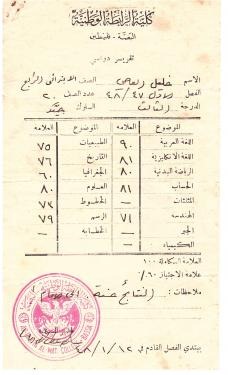 كلية الرابطة الوطنية
البعنة - فلسطين
تقرير دراسي
الاسم خليل الصف الابتدائي الرابع
الفصل الاول ٤٧/٤٨ عدد الصف ٢٠
الدرجة الثالث السلوك جيد
الموضوع العلامه الموضوع العلامه
اللغة العربية ٩٠ الطبيعيات ٧٥
اللغة الانكليزية ٨١ التاريخ ٧٦
الرياضة البدنية ٨٠ الجغرافيا ٦٠
الحساب ٨١ العلوم ٨٠
المثلثات - الخطوط ٧٣
الهندسه ٧١ الرسم ٧٩
الجبر - الخطابه -
الكيمياء -
العلامة الكاملة ١٠٠
علامة الاجتياز ٦٠٪
ملاحظات : النتائج حسنة
يبتدئ الفصل القادم في ٤٨/١/١٢